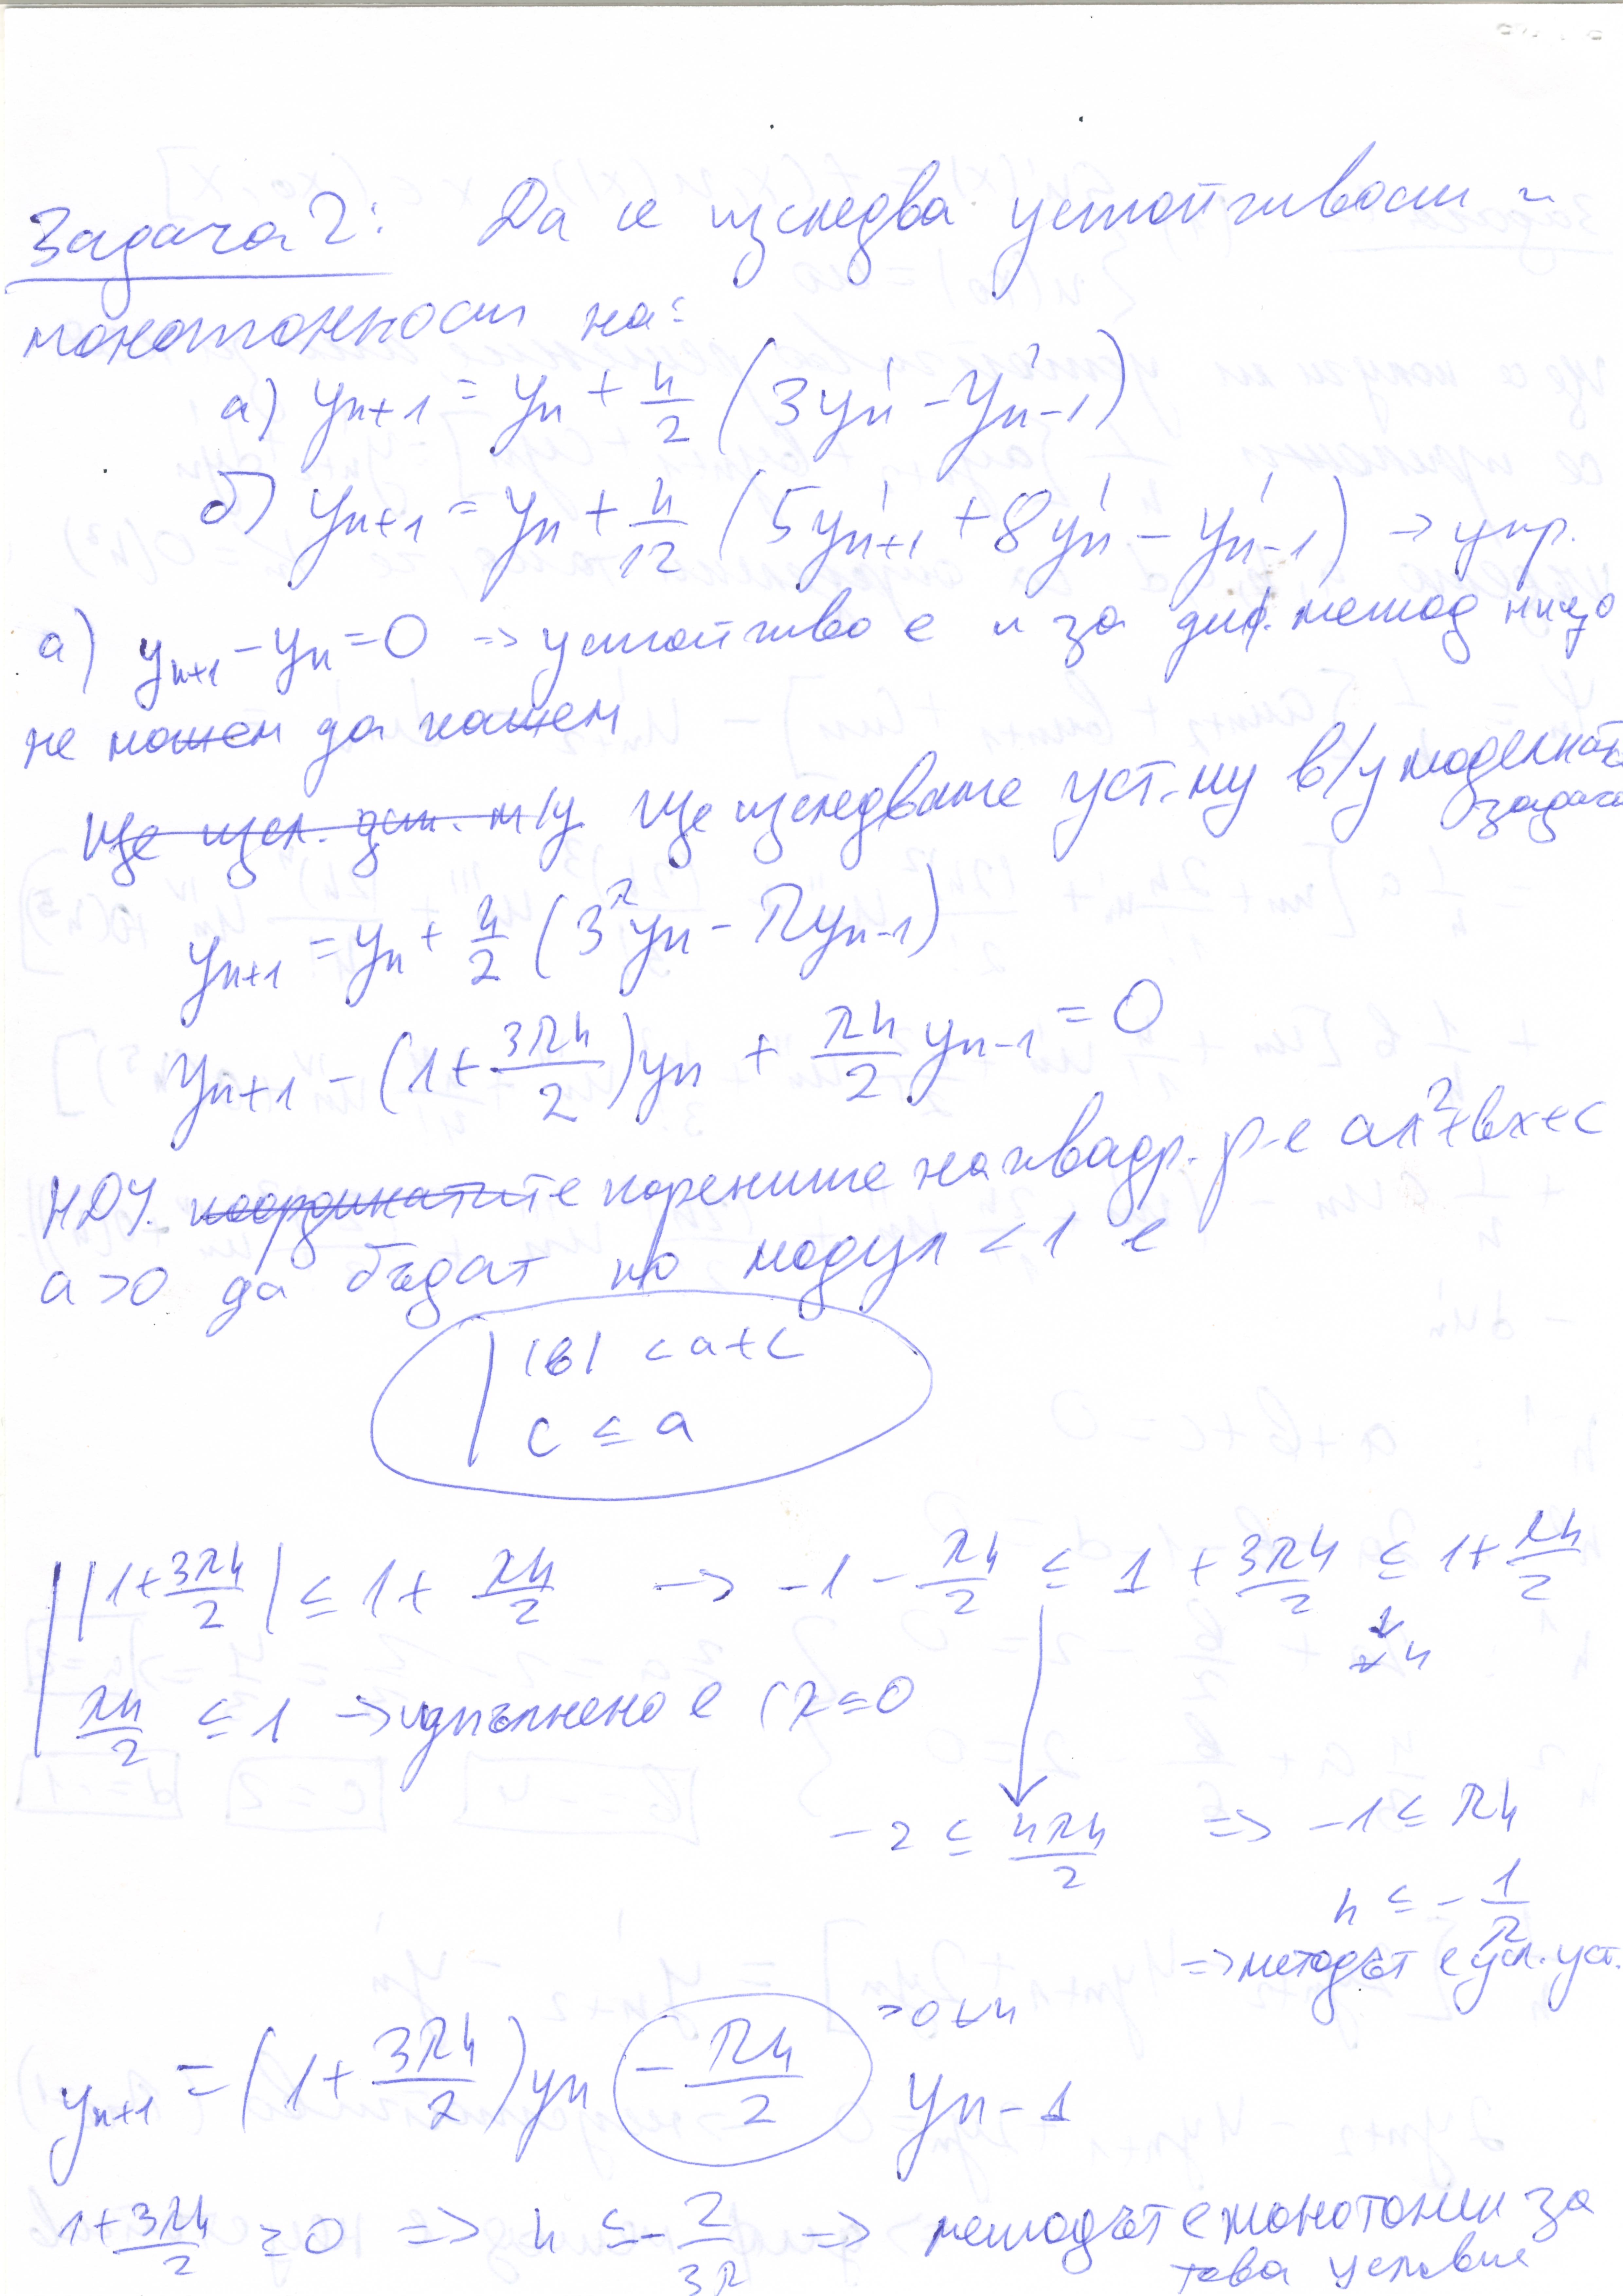 Задача 2: Да се изследва устойчивост и
монотонност на:
а) yn+1 = yn + h/2 (3y'n - y'n-1)
б) yn+1 = yn + h/12 (5y'n+1 + 8y'n - y'n-1) → упр.
а) yn+1 - yn = 0 => устойчиво е и за диф. метод нищо
не можем да кажем
Ще изсл. уст. м/у Ще изследваме уст. му в/у моделната
задача
yn+1 = yn + h/2 (3λyn - λyn-1)
yn+1 - (1 + 3λh/2)yn + λh/2 yn-1 = 0
НДУ. координатите корените на квадр. р-е ax²+bx+c
a>0 да бъдат по модул < 1 е
|b| < a+c
c ≤ a
|1 + 3λh/2| ≤ 1 + λh/2 → -1 - λh/2 ≤ 1 + 3λh/2 ≤ 1 + λh/2
∀h
λh/2 ≤ 1 → изпълнено е (λ≤0
-2 ≤ 4λh/2 => -1 ≤ λh
h ≤ - 1/λ
=> методът е усл. уст.
yn+1 = (1 + 3λh/2)yn - λh/2 yn-1
>0 ∀h
1 + 3λh/2 ≥ 0 => h ≤ - 2/3λ => методът е монотонен за
това условие